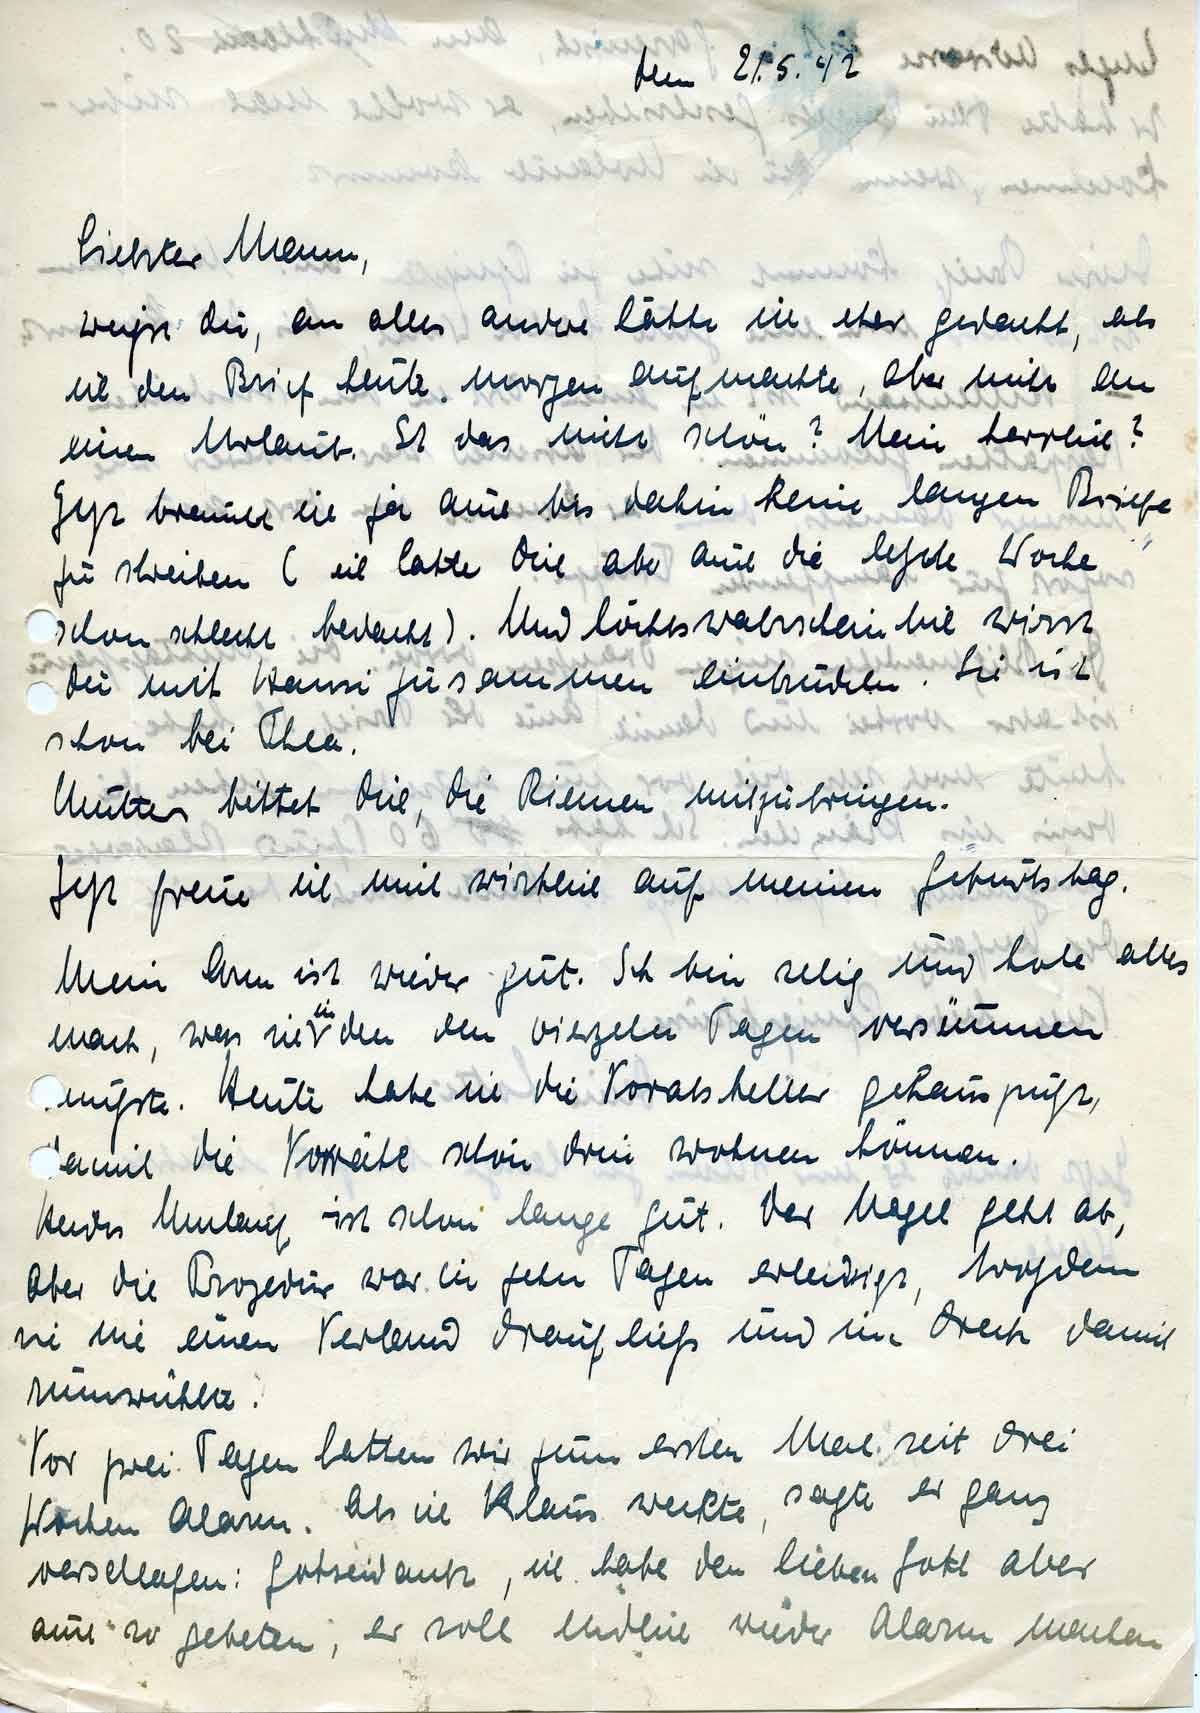 den 21.5.42
Liebster Mann,
weißt du, an alles andere hätte ich eher gedacht, als
ich den Brief heute morgen aufmachte, aber nicht an
einen Urlaub. Ist das nicht schön? Mein herrlich?
Jetzt brauch ich ja auch bis dahin keine langen Briefe
zu schreiben (ich hatte dich aber auch die letzte Woche
schon schlecht bedacht). Und höchstwahrscheinlich wirst
du mit Hansi zusammen eintrudeln. Sie ist
schon bei Thea.
Mutter bittet dich, die Riemen mitzubringen.
Jetzt freue ich mich wirklich auf meinen Geburtstag.
Mein Arm ist wieder gut. Ich bin selig und hole alles
nach, was ich in den vierzehn Tagen versäumen
mußte. Heute habe ich die Voratskeller gehausputzt,
damit die Vorräte schön drin wohnen können.
Umlauf ist schon lange gut. Der Nagel geht ab,
aber die Prozedur war in zehn Tagen erledigt, trotzdem
sie nie einen Verband drauf ließ und im Dreck damit
rumwühlte.
Vor zwei Tagen hatten wir zum ersten Mal seit drei
Wochen Alarm. Als ich Klaus weckte, sagte er ganz
verschlafen: Gotseidank, ich habe den lieben Gott aber
auch so gebeten, er soll endlich wieder Alarm machen